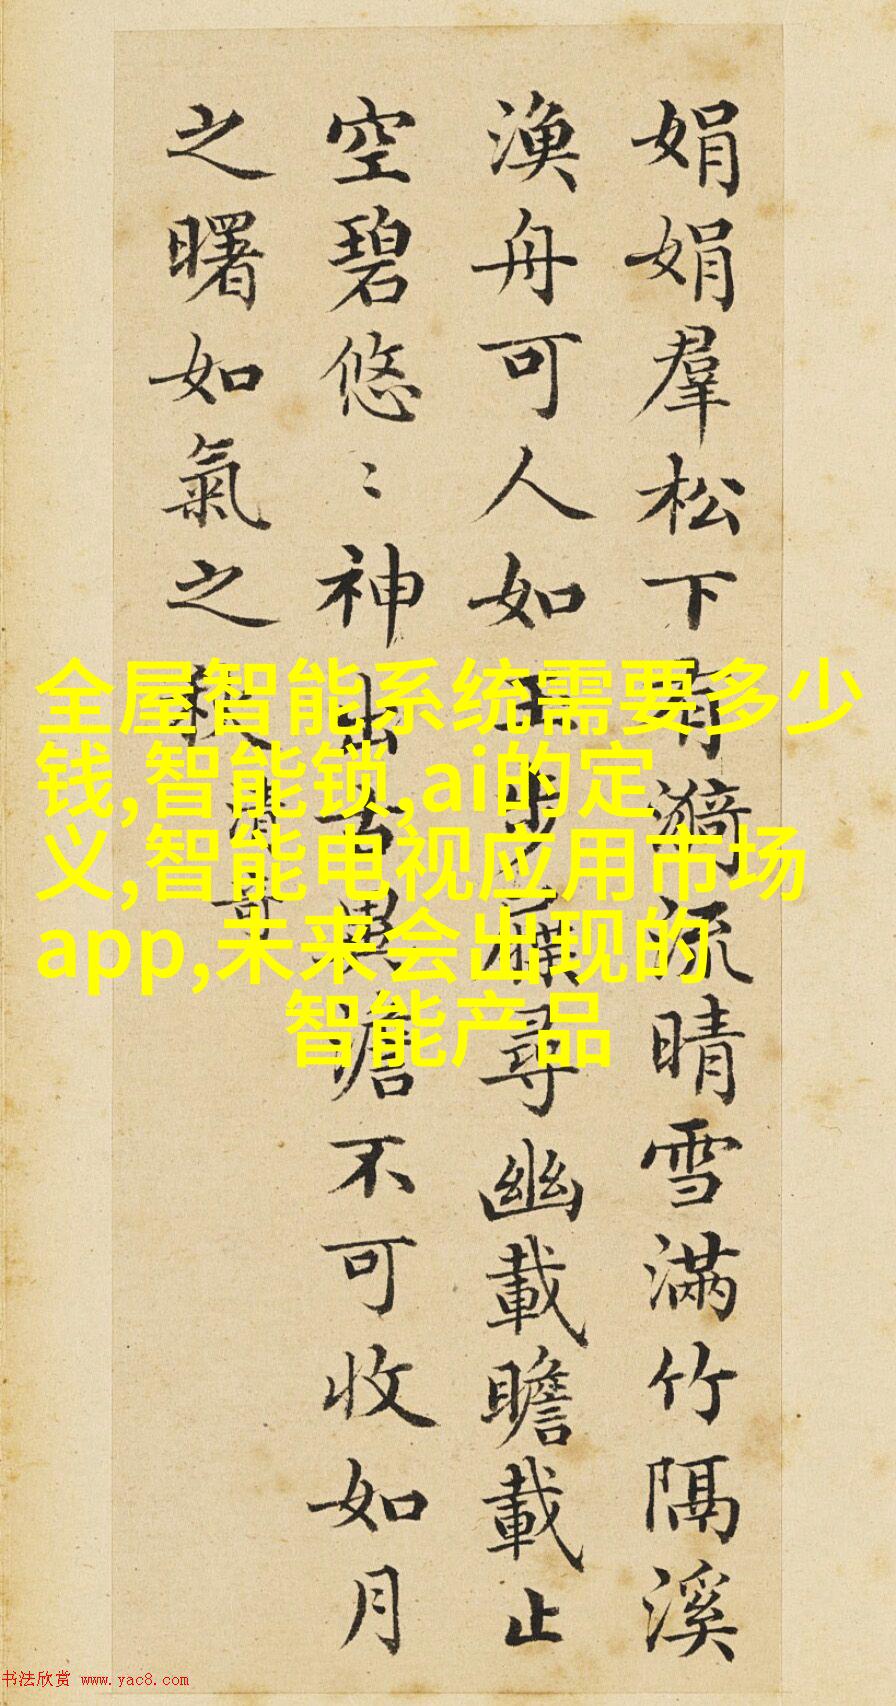 娟娟羣松下有漪流晴雪滿竹隔溪
漁舟可人如玉步屧尋幽載瞻載止
空碧悠〻神出古異澹不可收如月
之曙如氣之秋
清奇
全屋智能系统需要多少
钱,智能锁,ai的定
义,智能电视应用市场
app,未来会出现的
智能产品
书法欣赏 www.yac8.com